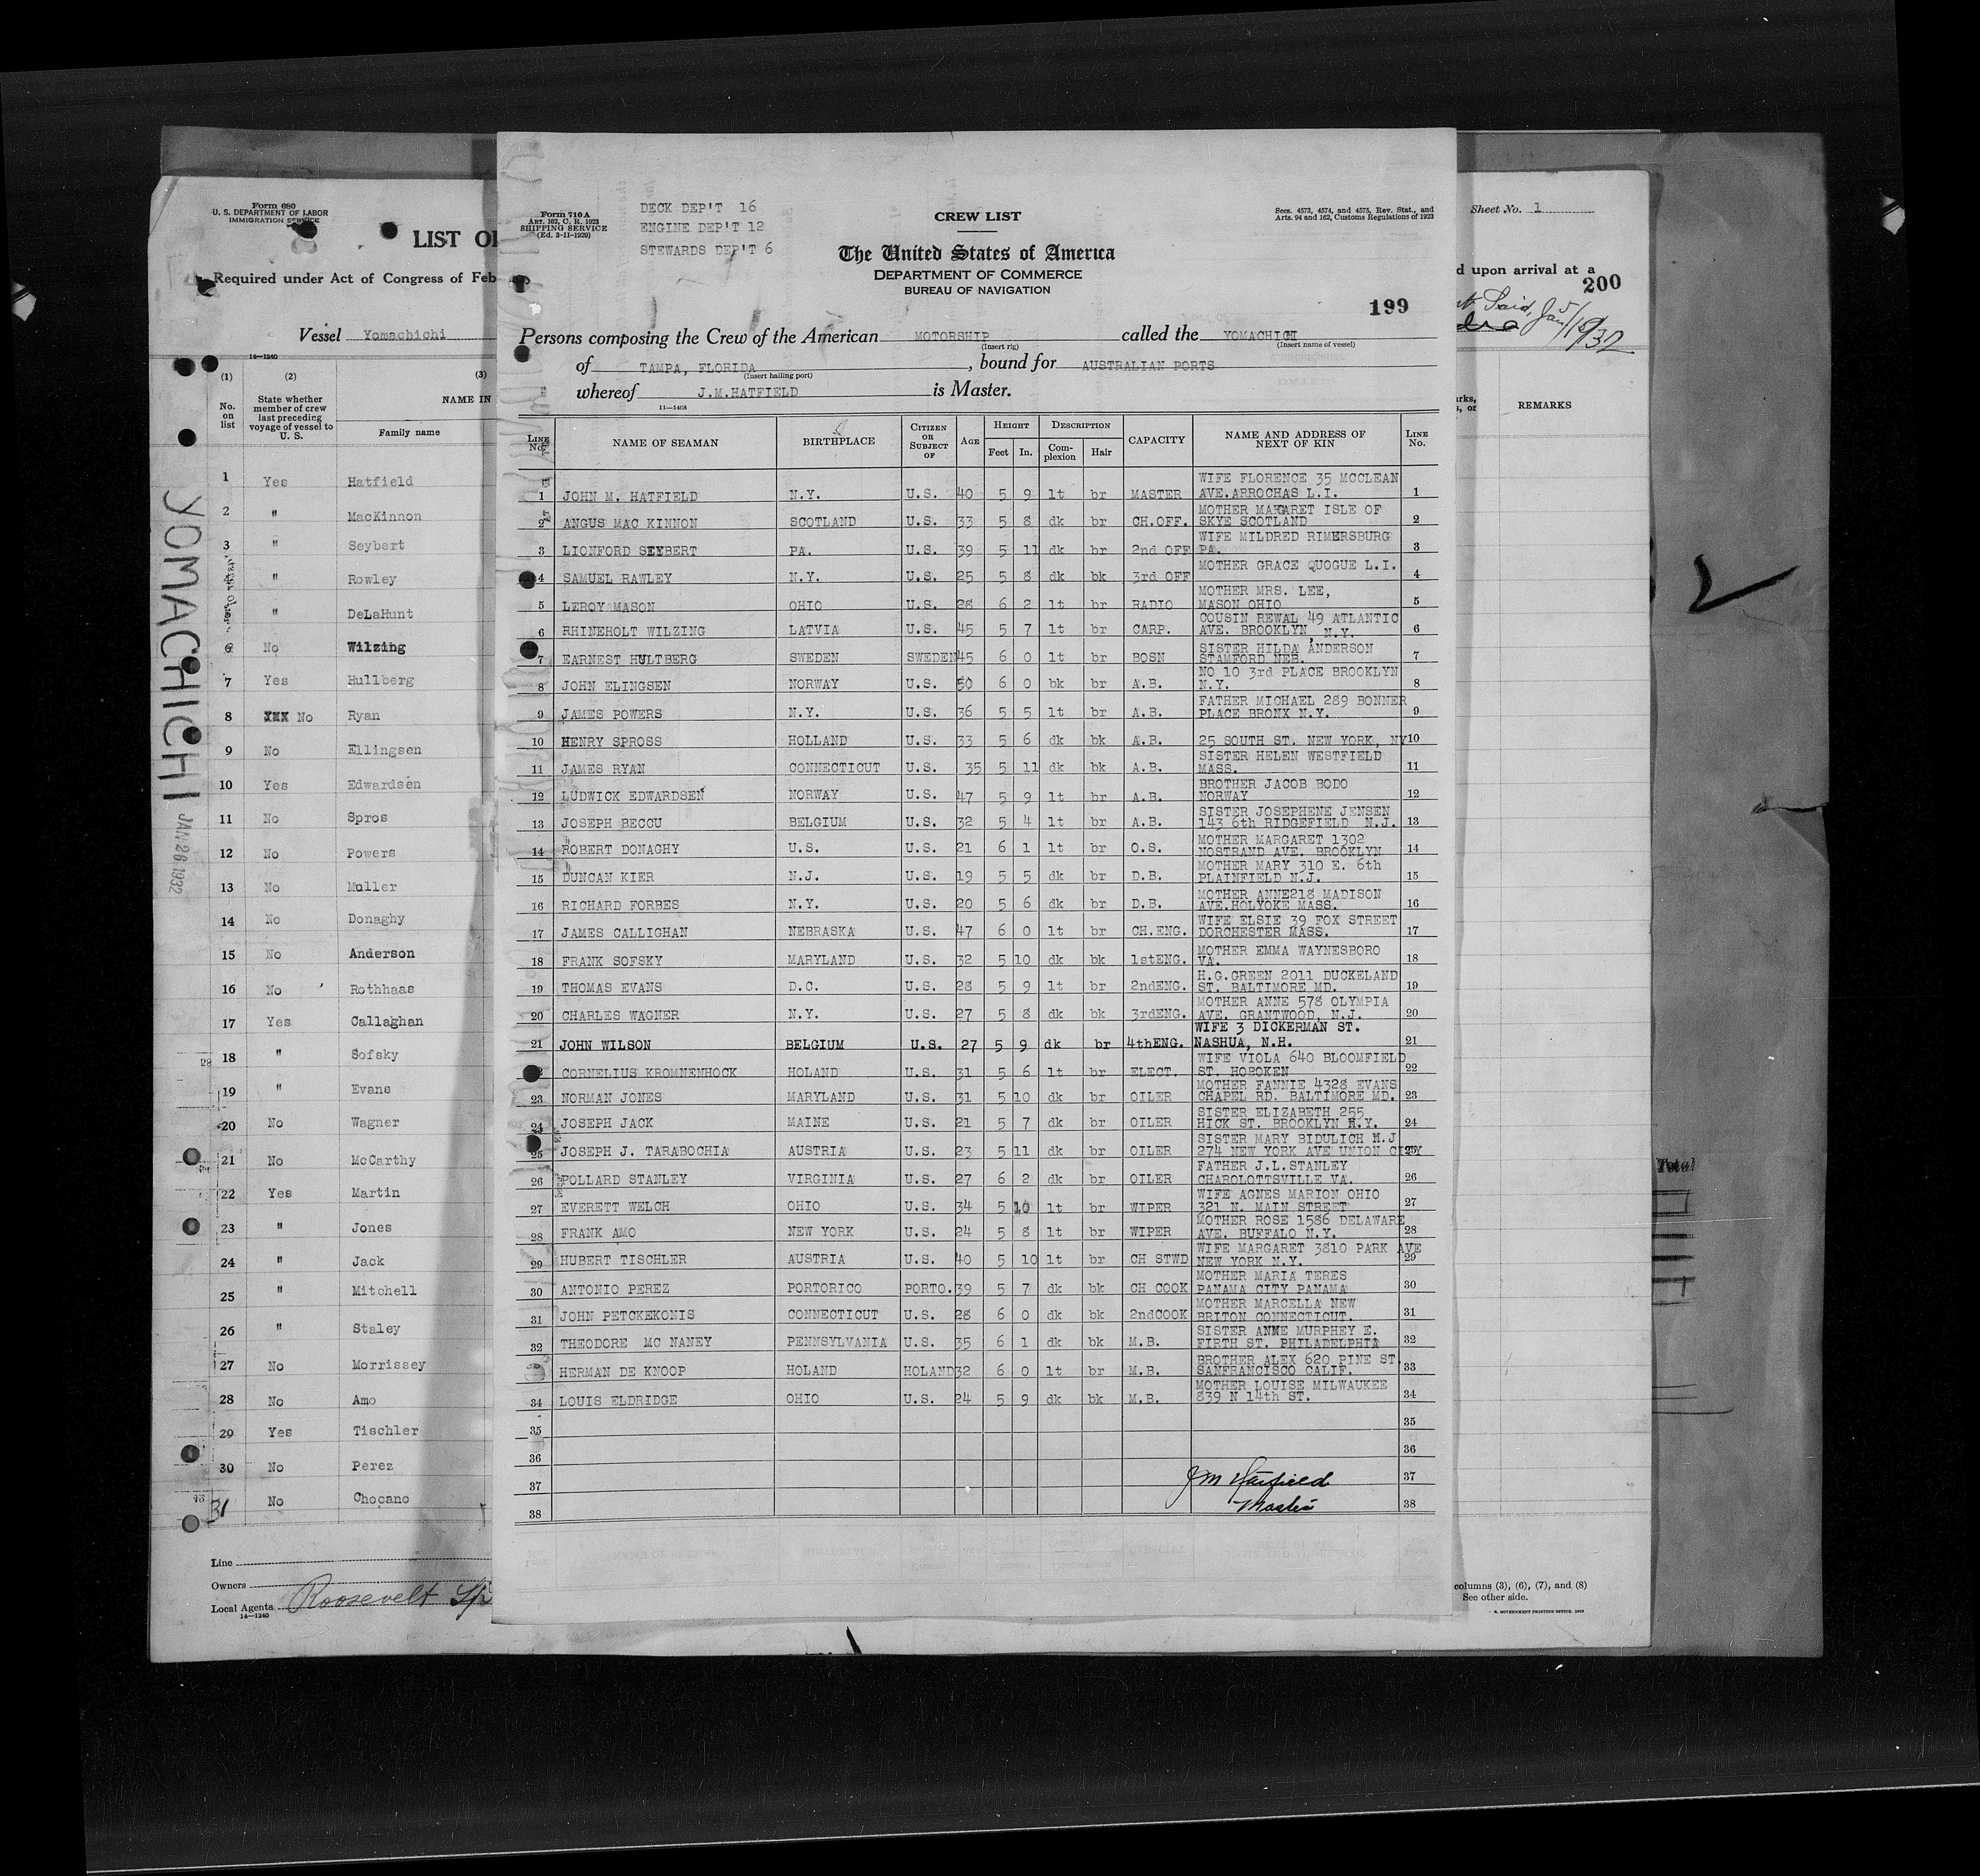 Form 680
U. S. DEPARTMENT OF LABOR
IMMIGRATION SERVICE
LIST OF
Required under Act of Congress of Feb
Vessel Yomachichi
14—1240
(1) (2) (3)
No. on list State whether member of crew last preceding voyage of vessel to U. S. NAME IN
Family name
1 Yes Hatfield
2 " MacKinnon
3 " Seybert
4 " Rowley
" DeLaHunt
6 No Wilzing
7 Yes Hullberg
8 No Ryan
9 No Ellingsen
10 Yes Edwardsen
11 No Spros
12 No Powers
13 No Muller
14 No Donaghy
15 No Anderson
16 No Rothhaas
17 Yes Callaghan
18 " Sofsky
19 " Evans
20 No Wagner
21 No McCarthy
22 Yes Martin
23 " Jones
24 " Jack
25 " Mitchell
26 " Staley
27 No Morrissey
28 No Amo
29 Yes Tischler
30 No Perez
31 No Chocano
Line
Owners
Local Agents Roosevelt
14—1240
YOMACHICHI
JAN 26 1932
Form 710 A
ART. 162, C. R. 1923
SHIPPING SERVICE
(Ed. 3-11-1929)
DECK DEP'T 16
ENGINE DEP'T 12
STEWARDS DEP'T 6
CREW LIST
Secs. 4573, 4574, and 4575, Rev. Stat., and
Arts. 94 and 162, Customs Regulations of 1923
The United States of America
DEPARTMENT OF COMMERCE
BUREAU OF NAVIGATION
199
Persons composing the Crew of the American MOTORSHIP called the YOMACHICHI
(Insert rig) (Insert name of vessel)
of TAMPA, FLORIDA, bound for AUSTRALIAN PORTS
(Insert hailing port)
whereof J.M.HATFIELD is Master.
11—1408
LINE No. NAME OF SEAMAN BIRTHPLACE CITIZEN OR SUBJECT OF AGE HEIGHT DESCRIPTION CAPACITY NAME AND ADDRESS OF NEXT OF KIN LINE No.
Feet In. Complexion Hair
1 JOHN M. HATFIELD N.Y. U.S. 40 5 9 lt br MASTER WIFE FLORENCE 35 MCCLEAN AVE.ARROCHAS L.I. 1
2 ANGUS MAC KINNON SCOTLAND U.S. 33 5 8 dk br CH.OFF. MOTHER MARGARET ISLE OF SKYE SCOTLAND 2
3 LIONFORD SEYBERT PA. U.S. 39 5 11 dk br 2nd OFF WIFE MILDRED RIMERSBURG PA. 3
4 SAMUEL RAWLEY N.Y. U.S. 25 5 8 dk bk 3rd OFF MOTHER GRACE QUOGUE L.I. 4
5 LEROY MASON OHIO U.S. 28 6 2 lt br RADIO MOTHER MRS. LEE, MASON OHIO 5
6 RHINEHOLT WILZING LATVIA U.S. 45 5 7 lt br CARP. COUSIN REWAL 49 ATLANTIC AVE. BROOKLYN, N.Y. 6
7 EARNEST HULTBERG SWEDEN SWEDEN 45 6 0 lt br BOSN SISTER HILDA ANDERSON STAMFORD NEB. 7
8 JOHN ELINGSEN NORWAY U.S. 50 6 0 bk br A.B. NO 10 3rd PLACE BROOKLYN N.Y. 8
9 JAMES POWERS N.Y. U.S. 36 5 5 lt br A.B. FATHER MICHAEL 289 BONNER PLACE BRONX N.Y. 9
10 HENRY SPROSS HOLLAND U.S. 33 5 6 dk bk A.B. 25 SOUTH ST. NEW YORK, NY 10
11 JAMES RYAN CONNECTICUT U.S. 35 5 11 dk bk A.B. SISTER HELEN WESTFIELD MASS. 11
12 LUDWICK EDWARDSEN NORWAY U.S. 47 5 9 lt br A.B. BROTHER JACOB BODO NORWAY 12
13 JOSEPH BECOU BELGIUM U.S. 32 5 4 lt br A.B. SISTER JOSEPHENE JENSEN 143 6th RIDGEFIELD N.J. 13
14 ROBERT DONAGHY U.S. U.S. 21 6 1 lt br O.S. MOTHER MARGARET 1302 NOSTRAND AVE. BROOKLYN 14
15 DUNCAN KIER N.J. U.S. 19 5 5 dk br D.B. MOTHER MARY 310 E. 6th PLAINFIELD N.J. 15
16 RICHARD FORBES N.Y. U.S. 20 5 6 dk br D.B. MOTHER ANNE218 MADISON AVE.HOLYOKE MASS. 16
17 JAMES CALLIGHAN NEBRASKA U.S. 47 6 0 lt br CH.ENG. WIFE ELSIE 39 FOX STREET DORCHESTER MASS. 17
18 FRANK SOFSKY MARYLAND U.S. 32 5 10 dk bk 1stENG. MOTHER EMMA WAYNESBORO VA. 18
19 THOMAS EVANS D.C. U.S. 28 5 9 lt br 2ndENG. H.G.GREEN 2011 DUCKELAND ST. BALTIMORE MD. 19
20 CHARLES WAGNER N.Y. U.S. 27 5 8 dk bk 3rdENG. MOTHER ANNE 578 OLYMPIA AVE. GRANTWOOD, N.J. 20
21 JOHN WILSON BELGIUM U.S. 27 5 9 dk br 4thENG. WIFE 3 DICKERMAN ST. NASHUA, N.H. 21
CORNELIUS KROMNENHOCK HOLAND U.S. 31 5 6 lt br ELECT. WIFE VIOLA 640 BLOOMFIELD ST. HOBOKEN 22
23 NORMAN JONES MARYLAND U.S. 31 5 10 dk br OILER MOTHER FANNIE 4328 EVANS CHAPEL RD. BALTIMORE MD. 23
24 JOSEPH JACK MAINE U.S. 21 5 7 dk br OILER SISTER ELIZABETH 255 HICK ST. BROOKLYN N.Y. 24
25 JOSEPH J. TARABOCHIA AUSTRIA U.S. 23 5 11 dk br OILER SISTER MARY BIDULICH N.J 274 NEW YORK AVE UNION CITY 25
26 POLLARD STANLEY VIRGINIA U.S. 27 6 2 dk br OILER FATHER J.L.STANLEY CHAROLOTTSVILLE VA. 26
27 EVERETT WELCH OHIO U.S. 34 5 10 lt br WIPER WIFE AGNES MARION OHIO 321 N. MAIN STREET 27
28 FRANK AMO NEW YORK U.S. 24 5 8 lt br WIPER MOTHER ROSE 1586 DELAWARE AVE. BUFFALO N.Y. 28
29 HUBERT TISCHLER AUSTRIA U.S. 40 5 10 lt br CH STWD WIFE MARGARET 3810 PARK AVE NEW YORK N.Y. 29
30 ANTONIO PEREZ PORTORICO PORTO. 39 5 7 dk bk CH COOK MOTHER MARIA TERES PANAMA CITY PANAMA 30
31 JOHN PETCKEKONIS CONNECTICUT U.S. 28 6 0 dk bk 2ndCOOK MOTHER MARCELLA NEW BRITON CONNECTICUT. 31
32 THEODORE MC NANEY PENNSYLVANIA U.S. 35 6 1 dk bk M.B. SISTER ANNE MURPHEY E. FIRTH ST. PHILADELPHIA 32
HERMAN DE KNOOP HOLAND HOLAND 32 6 0 lt br M.B. BROTHER ALEX 620 PINE ST SANFRANCISCO CALIF. 33
34 LOUIS ELDRIDGE OHIO U.S. 24 5 9 dk bk M.B. MOTHER LOUISE MILWAUKEE 839 N 14th ST. 34
35 35
36 36
37 J M Hatfield 37
38 Master 38
Sheet No. 1
d upon arrival at a
200
Said, Jan 5/32
REMARKS
Total
columns (3), (6), (7), and (8)
See other side.